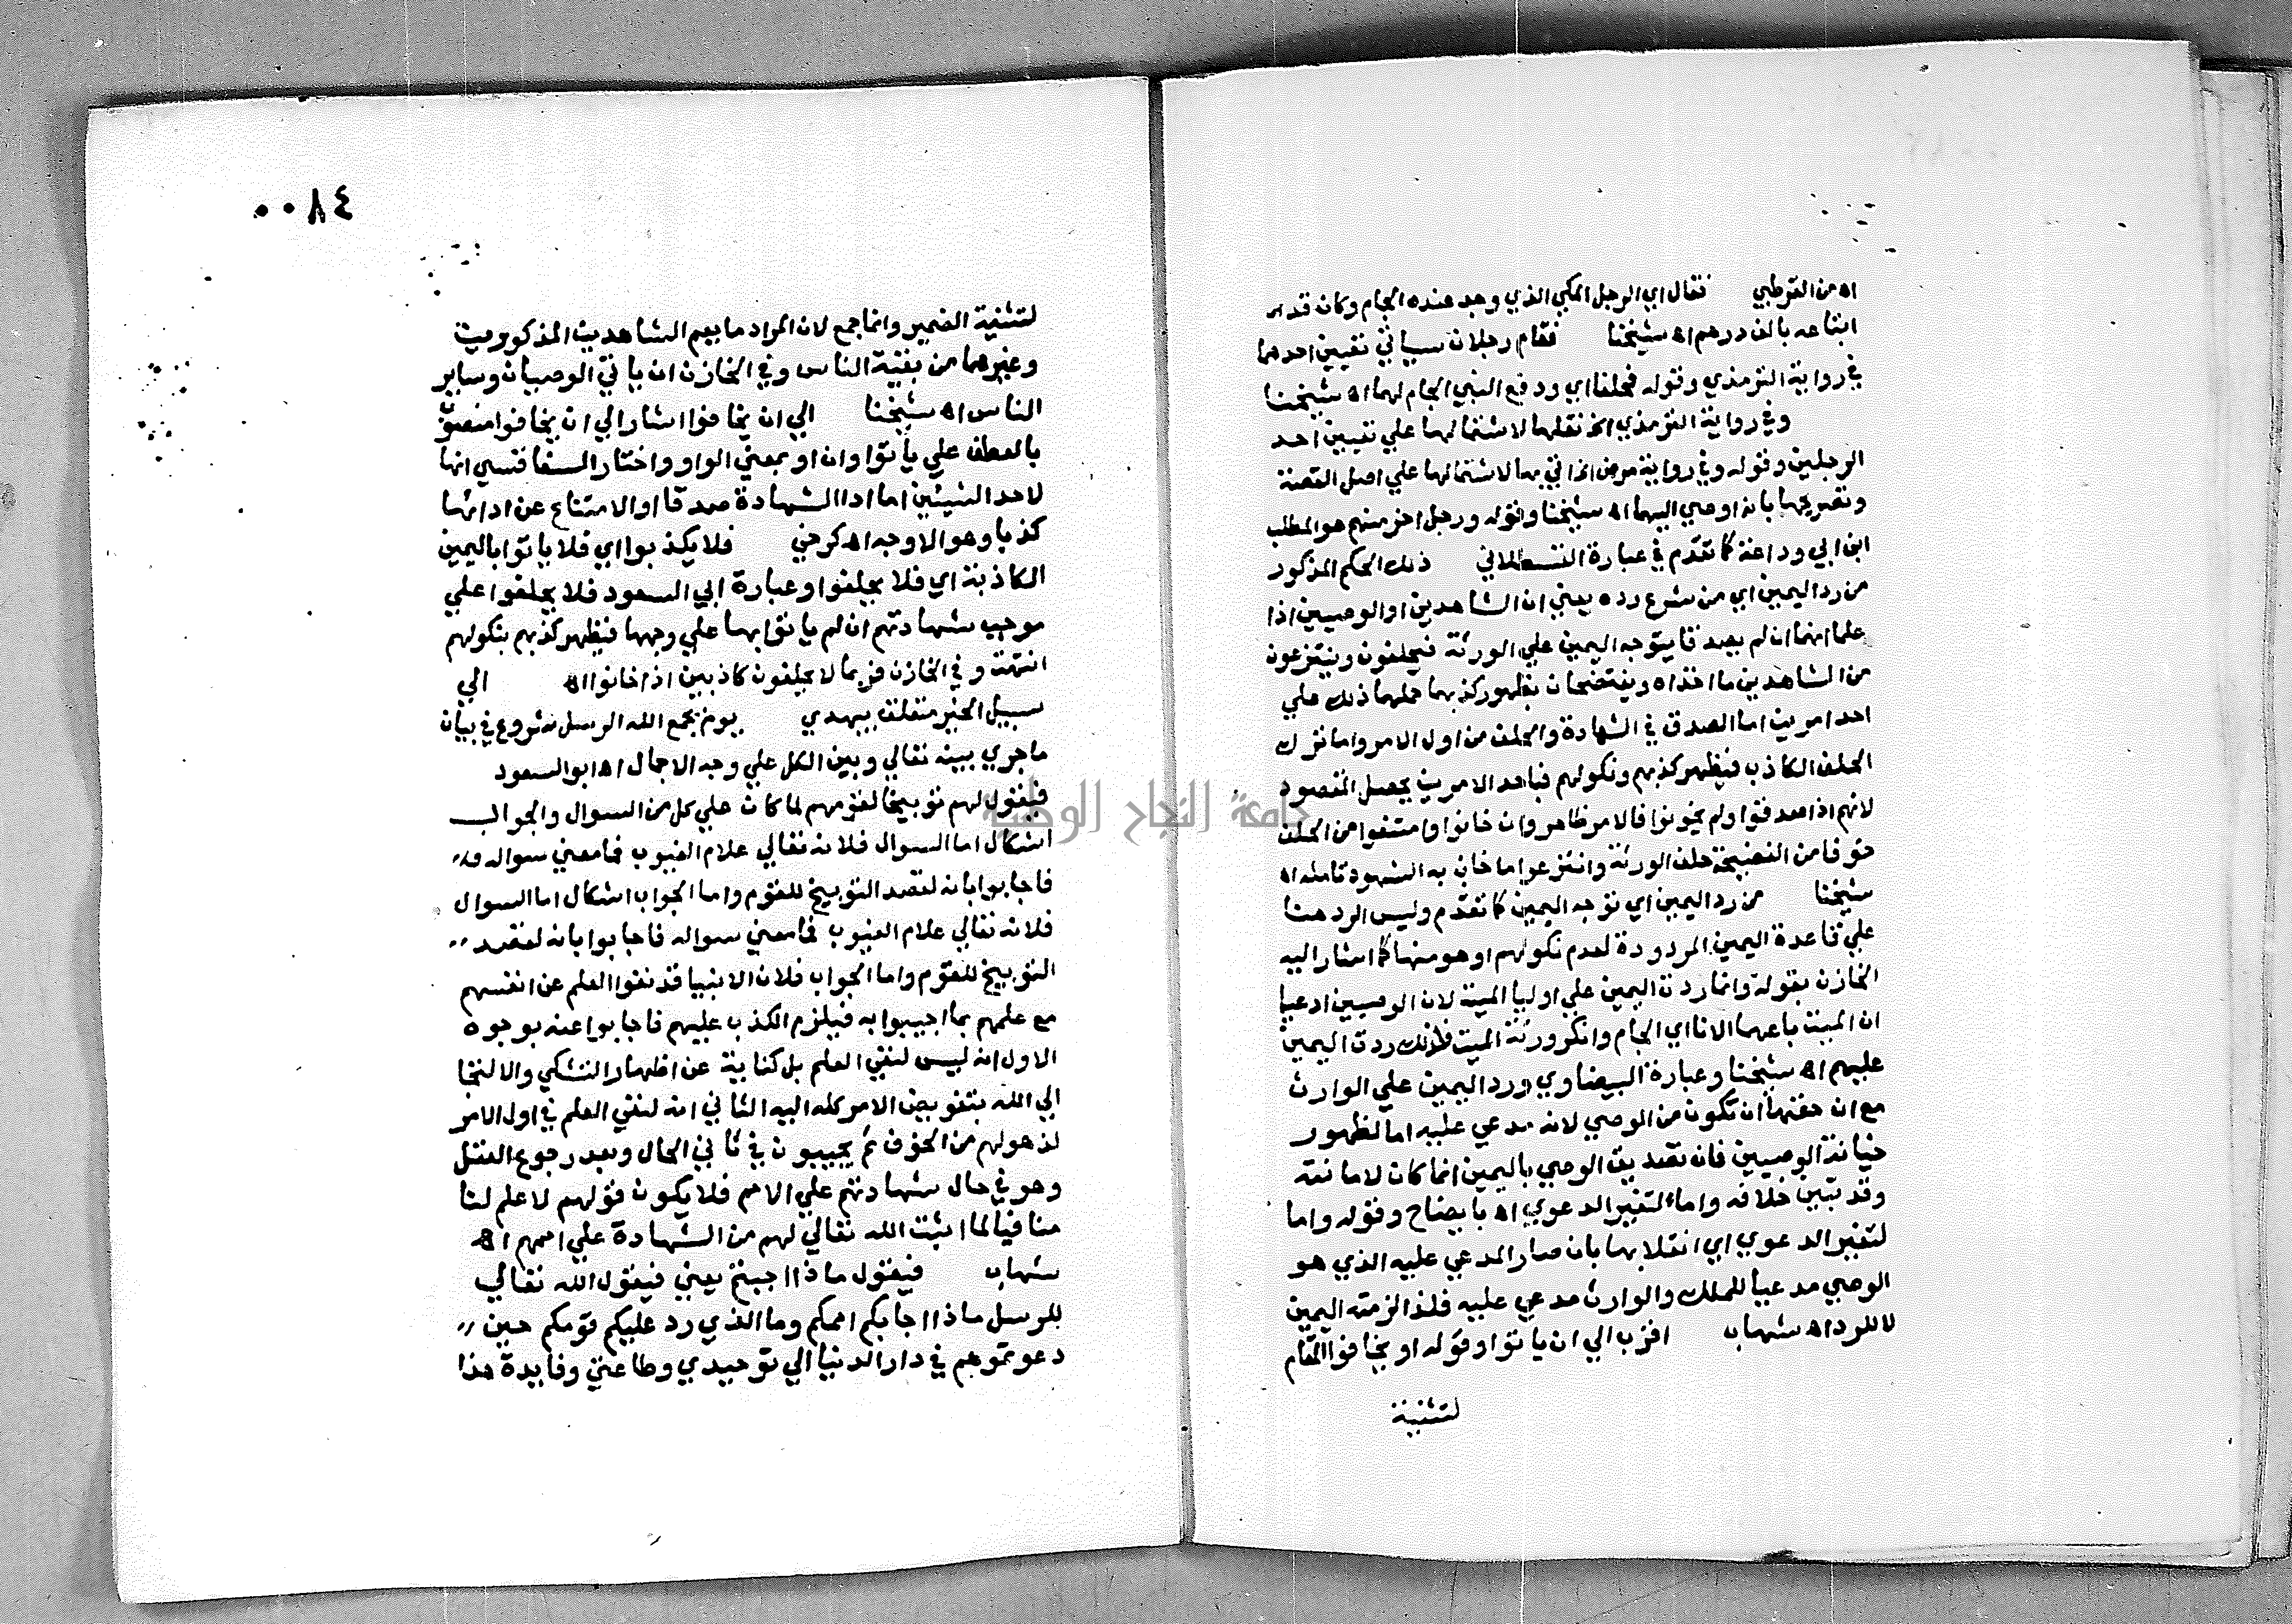 اه من القرطبي فقال اي الرجل المكي الذي وجد عنده الجام وكان قد
ابتاعه بالف درهم اه شيخنا فقام رجلان سياتي تعيين احدهما
في رواية الترمذي وقوله فحلفا اي ودفع النبي الجام لهما اه شيخنا
وفي رواية الترمذي الخ نقلها لاشتمالها علي تعيين احد
الرجلين وقوله وفي رواية مرض الخ اتي بها لاشتمالها علي اصل القصة
وتصريحها بانه اوصي اليهما اه شيخنا وقوله ورجل اخر منهم هو المطلب
ابن ابي وداعة كما تقدم في عبارة القسطلاني ذلك الحكم المذكور
من رد اليمين اي من شرع رده يعني ان الشاهدين او الوصيين اذا
علما انهما ان لم يصدقا يتوجه اليمين علي الورثة فيحلفون وينتزعون
من الشاهدين ما اخذاه ويفتضحان بظهور كذبهما حملهما ذلك علي
احد امرين اما الصدق في الشهادة والحلف من اول الامر واما ترك
الحلف الكاذب فيظهر كذبهم ونكولهم فباحد الامرين يحصل المقصود
لانهم اذا صدقوا ولم يخونوا فالامر ظاهر وان خانوا وامتنعوا من الحلف
خوفا من الفضيحة حلف الورثة وانتزعوا ما خان به الشهود تامله اه
شيخنا من رد اليمين اي توجه اليمين كما تقدم وليس الرد هنا
علي قاعدة اليمين المردودة لعدم نكولهم او هو منها كما اشار اليه
الخازن بقوله وانما ردت اليمين علي اوليا الميت لان الوصيين ادعيا
ان الميت باعهما الانا اي الجام وانكر ورثة الميت فلذلك ردت اليمين
عليهم اه شيخنا وعبارة البيضاوي ورد اليمين علي الوارث
مع ان حقها ان تكون من الوصي لانه مدعي عليه اما لظهور
خيانة الوصيين فان تصديق الوصي باليمين انما كان لامانته
وقد تبين خلافه واما لتغير الدعوي اه بايضاح وقوله واما
لتغير الدعوي اي انقلابها بان صار المدعي عليه الذي هو
الوصي مدعيا للملك والوارث مدعي عليه فلذا لزمته اليمين
لا للرد اه شهاب اقرب الي ان ياتوا وقوله او يخافوا المقام
لتثنية
٠٠٨٤
لتثنية الضمير وانما جمع لان المراد ما يعم الشاهدين المذكورين
وغيرهما من بقية الناس وفي الخازن ان ياتي الوصيان وساير
الناس اه شيخنا الي ان يخافوا اشار الي ان يخافوا منصوب
بالعطف علي ياتوا وان او بمعني الواو واختار السفاقسي انها
لاحد الشيئين اما ادا الشهادة صدقا او الامتناع عن ادائها
كذبا وهو الاوجه اه كرخي فلا يكذبوا اي فلا ياتوا باليمين
الكاذبة اي فلا يحلفوا وعبارة ابي السعود فلا يحلفوا علي
موجب شهادتهم ان لم ياتوا بها علي وجهها فيظهر كذبهم بنكولهم
انتهت وفي الخازن فربما لا يحلفون كاذبين اذا خانوا اه الي
سبيل الخير متعلق بيهدي يوم يجمع الله الرسل شروع في بيان
ماجري بينه تعالي وبين الكل علي وجه الاجمال اه ابو السعود
فيقول لهم توبيخا لقومهم لما كان علي كل من السوال والجواب
اشكال اما السوال فلانه تعالي علام الغيوب فما معني سواله
فاجابوا بانه لقصد التوبيخ للقوم واما الجواب اشكال اما السوال
فلانه تعالي علام الغيوب فما معني سواله فاجابوا بانه لقصد
التوبيخ للقوم واما الجواب فلان الانبيا قد نفوا العلم عن انفسهم
مع علمهم بما اجيبوا به فيلزم الكذب عليهم فاجابوا عنه بوجوه
الاول انه ليس لنفي العلم بل كناية عن اظهار التشكي والالتجا
الي الله بتفويض الامر كله اليه الثاني انه لنفي العلم في اول الامر
لذهولهم من الخوف ثم يجيبون في ثاني الحال وبعد رجوع العقل
وهو في حال شهادتهم علي الامم فلا يكون قولهم لا علم لنا
منافيا لما اثبت الله تعالي لهم من الشهادة علي اممهم اه
شهاب فيقول ماذا اجبتم يعني فيقول الله تعالي
للرسل ماذا اجابكم اممكم وما الذي رد عليكم قومكم حين
دعوتموهم في دار الدنيا الي توحيدي وطاعتي وفايدة هذا
جامعة النجاح الوطنية